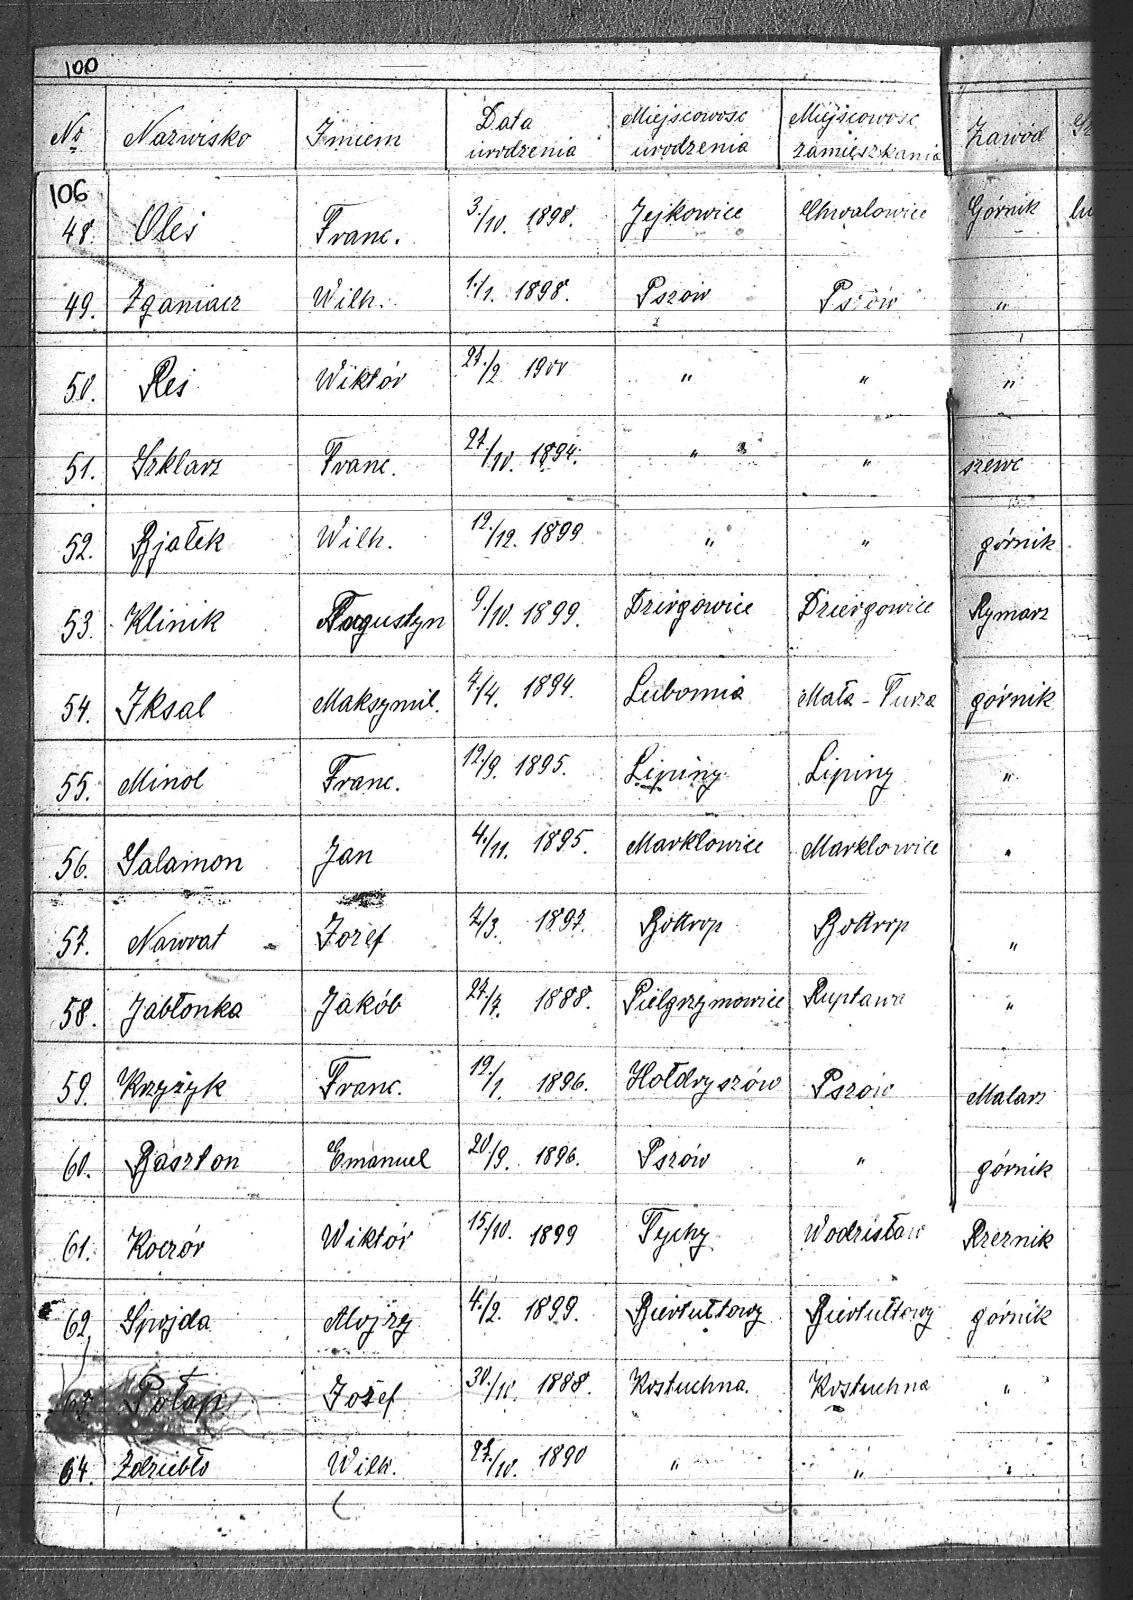 100
No Nazwisko Imiem Data urodzenia Miejscowosc urodzenia Miejscowosc zamieszkania Zawód
106
48. Oleś Franc. 3./10. 1898. Jejkowice Chwalowice Górnik
49. Zganiacz Wilh. 1./1. 1898. Pszów Pszów "
50. Reś Wiktór 21./2 1900 " " "
51. Szklarz Franc. 27./10. 1894. " " szewc
52. Bjałek Wilh. 12./12. 1899 " " górnik
53. Klinik Augustyn 9./10. 1899. Dzirgowice Dziergowice Rymarz
54. Iksal Maksymil. 7./4. 1894. Lubomia Mała - Turza górnik
55. Minol Franc. 12./9. 1895. Lipiny Lipiny "
56. Salamon Jan 4./11. 1895. Marklowice Marklowice "
57. Nawrat Jozef 2/3. 1897. Bottrop Bottrop "
58. Jabłonka Jakób 27./7. 1888. Pielgrzymowice Ruptawa "
59. Krzyżyk Franc. 19./1. 1896. Hołdryszów Pszów Malarz
60. Baszton Emanuel 20/9. 1896. Pszów " górnik
61. Koczór Wiktór 15./10. 1899 Tychy Wodzisław Rzeznik
62. Spojda Alojzy 4./2. 1899. Biertułtowy Biertułtowy górnik
Potap Jozef 30./11. 1888. Kostuchna. Kostuchna "
64. Zdziebło Wilh. 27./10. 1890 " " "